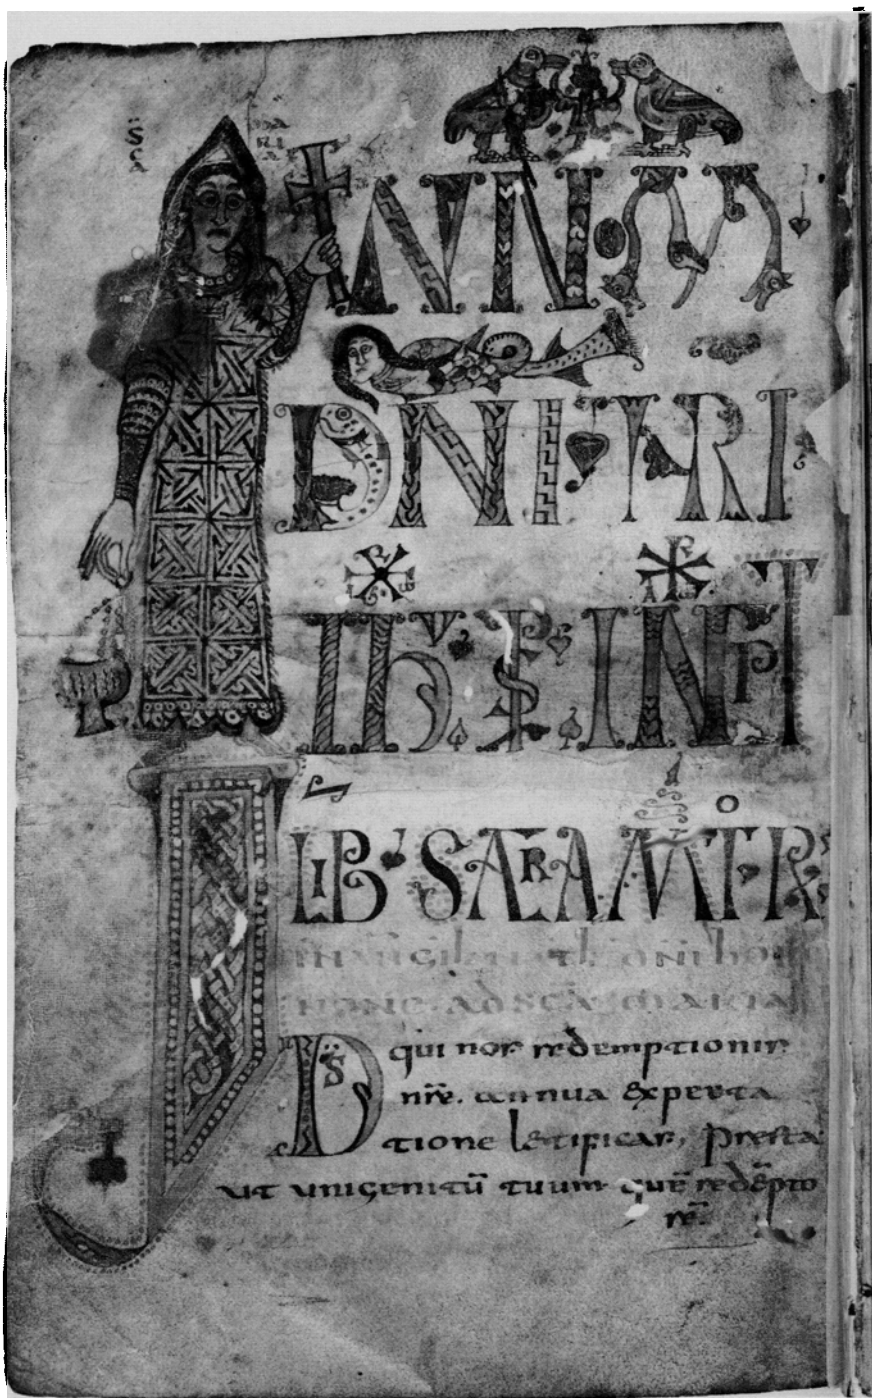 SCA MARIA
IN NOM
DNI NRI
IHU XPI INCPT
LIB SACRAMTOR
IN VIGIL NATL DNI HORA
NONE AD SCA MARIA
DS qui nos redemptionis
nre. annua expecta
tione letificas, presta
ut unigenitu tuum que redepto
re.